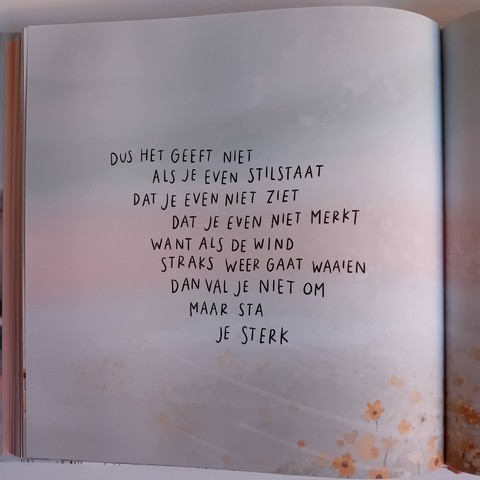 DUS HET GEEFT NIET
ALS JE EVEN STILSTAAT
DAT JE EVEN NIET ZIET
DAT JE EVEN NIET MERKT
WANT ALS DE WIND
STRAKS WEER GAAT WAAIEN
DAN VAL JE NIET OM
MAAR STA
JE STERK